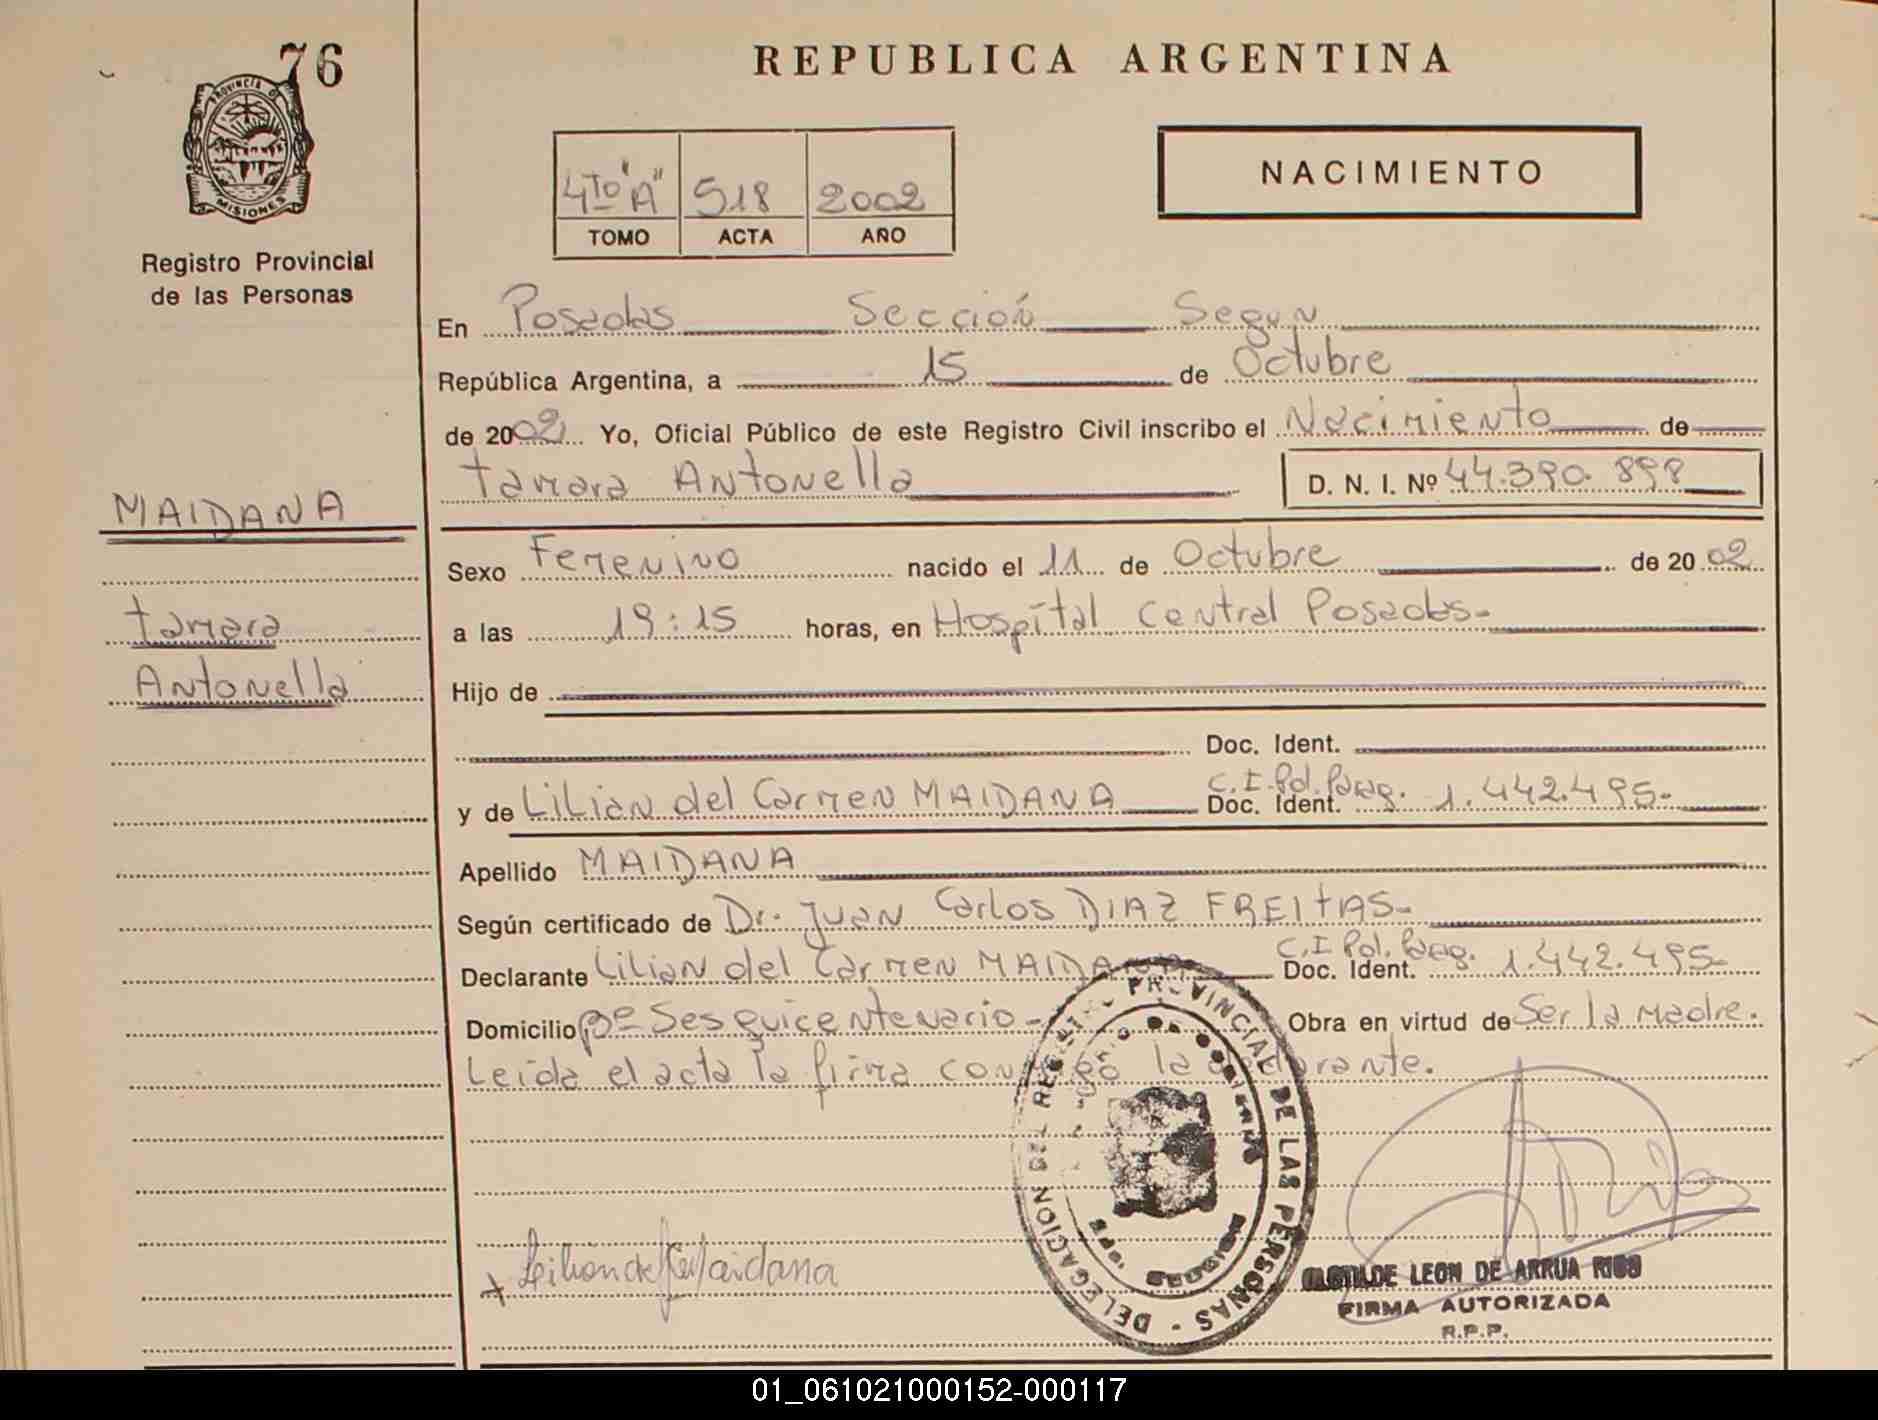 76
PROVINCIA DE
MISIONES
Registro Provincial
de las Personas
REPUBLICA ARGENTINA
4TO "A" 518 2002
TOMO ACTA AÑO
NACIMIENTO
En Posadas Sección Segun
República Argentina, a 15 de Octubre
de 2002 Yo, Oficial Público de este Registro Civil inscribo el Nacimiento de
Tamara Antonella D. N. I. Nº 44.390.898
MAIDANA
Tamara
Antonella
Sexo Femenino nacido el 11 de Octubre de 2002
a las 19:15 horas, en Hospital Central Posadas-
Hijo de
Doc. Ident.
y de Lilian del Carmen MAIDANA Doc. Ident. C.I. Pol. Parag. 1.442.495-
Apellido MAIDANA
Según certificado de Dr. Juan Carlos DIAZ FREITAS-
Declarante Lilian del Carmen MAIDANA Doc. Ident. C.I Pol. Parag. 1.442.495-
Domicilio Bº Sesquicentenario- Obra en virtud de Ser la madre.
Leida el acta la firma conmigo la declarante.
DELEGACION DEL REGISTRO PROVINCIAL DE LAS PERSONAS -
MISIONES
x Lilian del C Maidana
CLOTILDE LEON DE ARRUA RIOS
FIRMA AUTORIZADA
R.P.P.
01_061021000152-000117